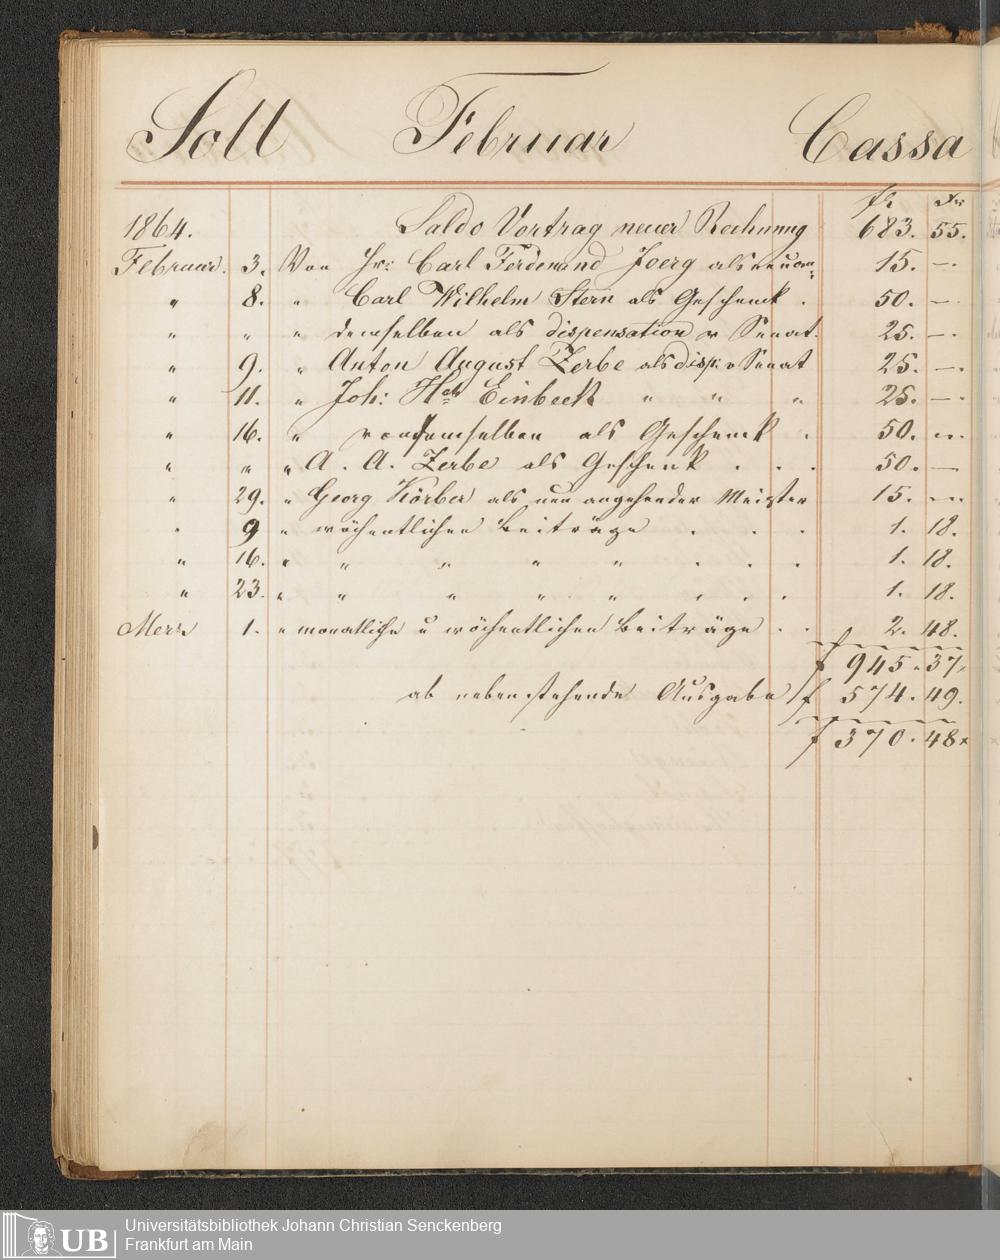 Soll Februar Cassa
fl xr
1864. Saldo Vortrag neuer Rechnung 683. 55.
Februar. 3. Von Hr: Carl Ferdinand Joerg als neuan- 15. —.
" 8. " Carl Wilhelm Stern als Geschenk . 50. —
" " " demselben als dispensation v Senat. 25. —.
" 9. " Anton August Zerbe als disp: v Senat 25. —.
" 11. " Joh: Hch Einbeck " " " 25. —.
" 16. " von demselben als Geschenk . 50. —.
" " " A. A. Zerbe als Geschenk . . . 50. —
" 29. " Georg Körber als neu angehender Meister 15. —.
" 9 " wöchentlichen Beiträge . . . 1. 18.
" 16. " " " " " . . . 1. 18.
" 23. " " " " " . . . 1. 18.
Merz 1. " monatliche u wöchentlichen Beiträge . . 2. 48.
f 945. 37.
ab nebenstehende Ausgabe f 574. 49.
f 370. 48x
UB Universitätsbibliothek Johann Christian Senckenberg
Frankfurt am Main